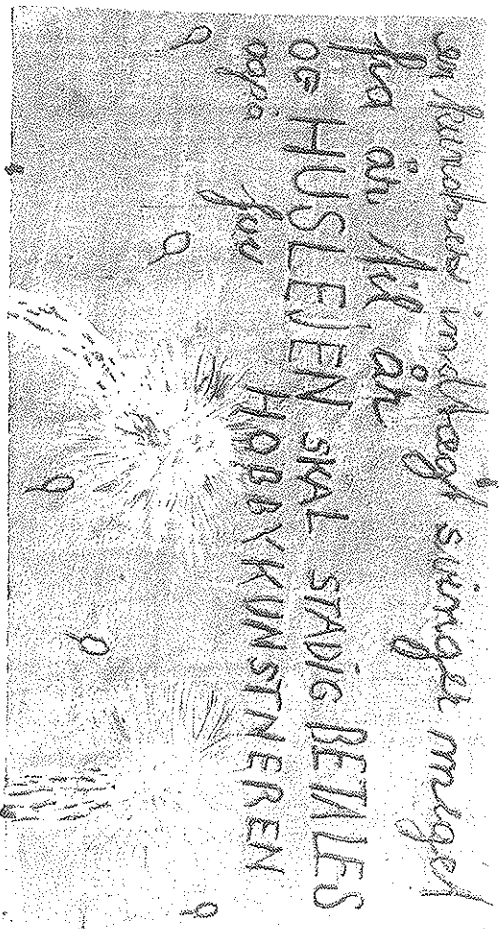 En kunstners indtægt svinger meget
fra år til år
OG HUSLEJEN SKAL STADIG BETALES
også for HOBBYKUNSTNEREN